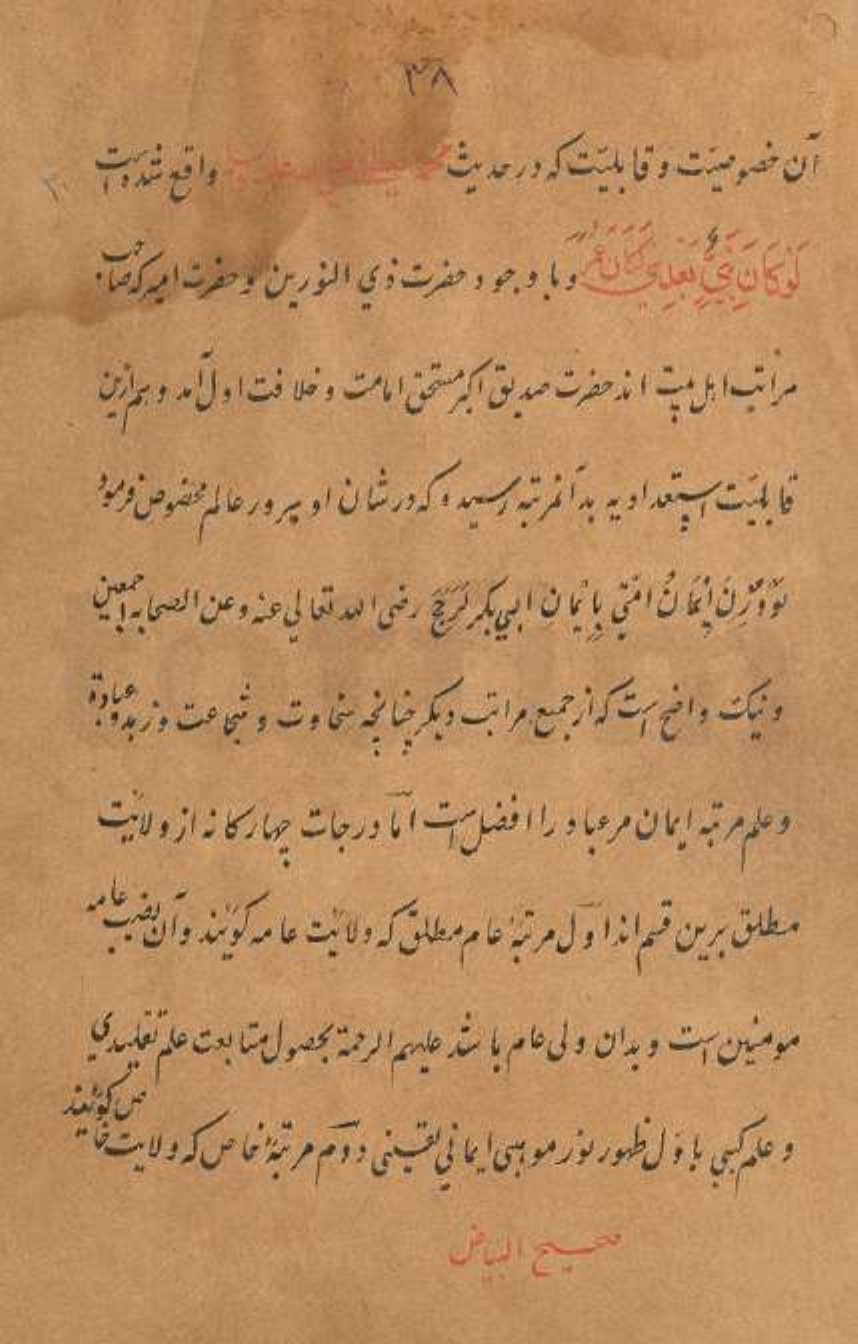 ٣٨
آن خصوصیت و قابلیت که در حدیث واقع شده است
لَوْ كَانَ نَبِيٌّ بَعْدِي لَكَانَ عُمَر و با وجود حضرت ذي النورین و حضرت امیر که صاحب
مراتب اهل بیت اند حضرت صدیق اکبر مستحق امامت و خلافت اول آمد و هم ازین
قابلیت استعدادیه بدآنمرتبه رسید و که در شان او سرور عالم مخصوص فرمود
لَوْ وُزِنَ إِيْمَانُ امَّتِي بِإِيْمَانِ ابي بكر لَرَجَحَ رضی الله تعالي عنه وعن الصحابه اجمعین
و نیک واضح است که از جمیع مراتب دیکر چنانچه سخاوت و شجاعت و زهد و عبادة
و علم مرتبه ایمان مر عباد را افضل است امّا درجات چهارکانه از ولایت
مطلق برین قسم اند اوّل مرتبهٔ عام مطلق که ولایت عامه کویند و آن نصیب عامه
مومنین است و بدان ولی عام باشد علیهم الرحمة بحصول متابعت علم تقلیدي
و علم کسبي باوّل ظهور نور موهبی ایماني یقینی دوّم مرتبهٔ خاص که ولایت خاص کویند
صحیح البیاض